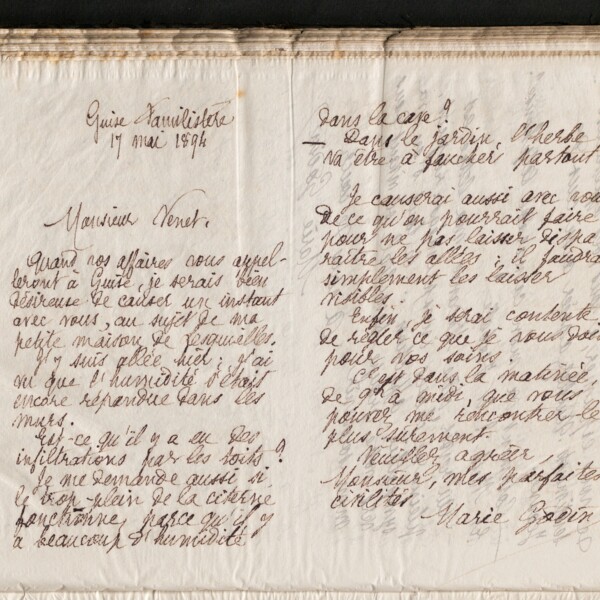 Guise Familistère
17 mai 1894
Monsieur Venet,
Quand vos affaires vous appel-
leront à Guise, je serais bien
désireuse de causer un instant
avec vous, au sujet de ma
petite maison de Lesquielles.
J'y suis allée hier ; j'ai
vu que l'humidité s'était
encore répandue dans les
murs.
Est-ce qu'il y a eu des
infiltrations par les toits ?
Je me demande aussi si
le trop-plein de la citerne
fonctionne, parce qu'il y
a beaucoup d'humidité
dans la cave ?
— Dans le jardin, l'herbe
va être à faucher partout
Je causerai aussi avec vou
de ce qu'on pourrait faire
pour ne pas laisser dispa
raître les allées ; il faudra
simplement les laisser
visibles.
Enfin, je serai contente
de régler ce que je vous dois
pour vos soins.
C'est dans la matinée,
de 9h à midi, que vous
pouvez me rencontrer le
plus surement.
Veuillez agréer,
Monsieur, mes parfaites
civilités
Marie Godin